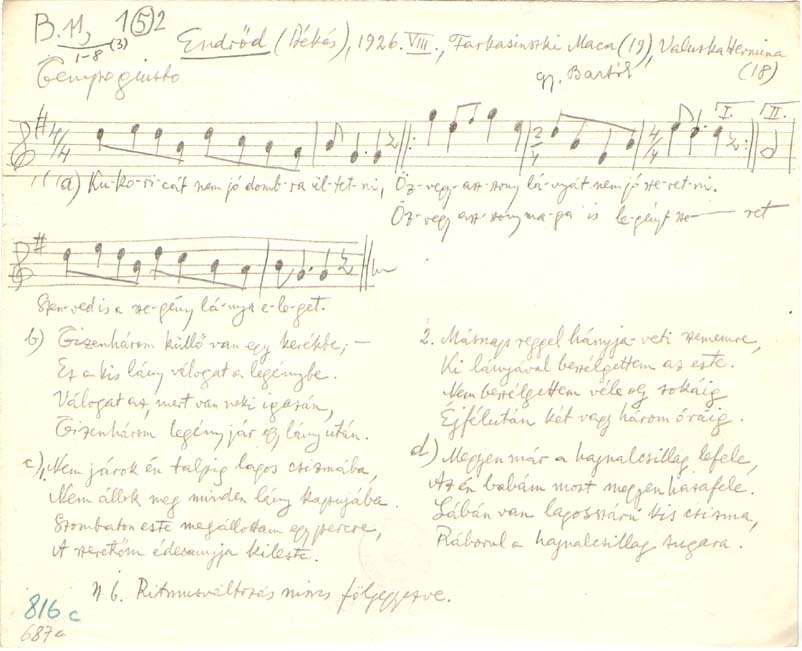 B. 11, 1 (5) 2
1-8 (3)
Endrőd (Békés), 1926. VIII., Farkasinszki Maca (19), Valuska Hermina (18)
Tempo giusto
gy. Bartók
4/4 2/4 4/4 I. II.
a) Ku-ko-ri-cát nem jó domb-ra ül-tet-ni, Öz-vegy-asz-szony lá-nyát nem jó sze-ret-ni.
Öz-vegy asz-szony ma-ga is le-gényt sze- ret
Szen-ved is a sze-gény lá-nya e-le-get.
b) Tizenhárom küllő van egy kerékbe, –
Ez a kis lány válogat a legénybe.
Válogat az, mert van neki igazán,
Tizenhárom legény jár egy lány után.
c) 1. Nem járok én talpig lagos csizmába,
Nem állok meg minden lány kapujába.
Szombaton este megállottam egy percre,
A szeretőm édesanyja kileste.
2. Másnap reggel hányja-veti szememre,
Ki lányával beszélgettem az este.
Nem beszélgettem véle oly sokáig
Éjfélután két vagy három óráig.
d) Megyen már a hajnalcsillag lefele,
Az én babám most megyen hazafele.
Lábán van lagosszárú kis csizma,
Ráborul a hajnalcsillag sugara.
N.B. Ritmusváltozás nincs följegyezve.
816 c
687a